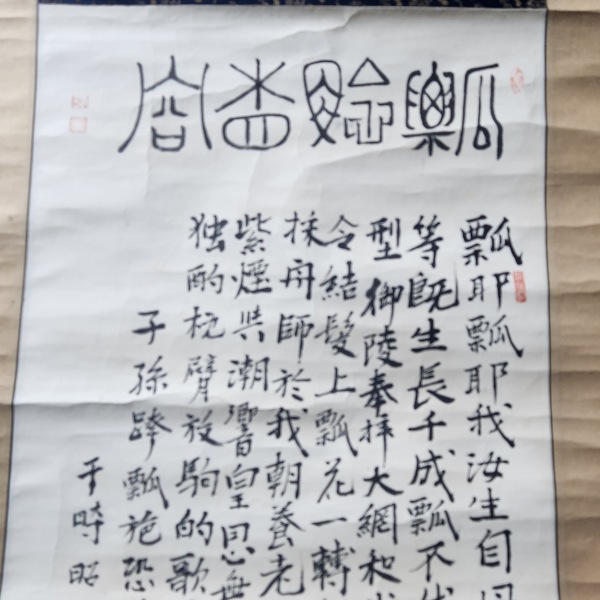 瓢
瓢耶瓢耶我汝生自
等既生長千成瓢不
型御陵奉拝大網和
令結髮上瓢花一轉
舟師於我朝養老
紫煙共潮響皇恩無
独酌枕臂放駒的歌
子孫瓢施恐
于時昭